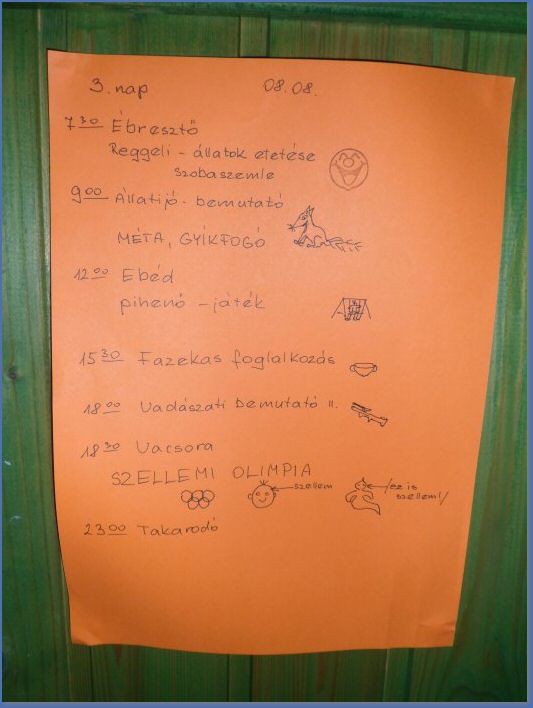 3. nap 08.08.
7 30 Ébresztő
Reggeli - állatok etetése
szobaszemle
9 00 Állatijó - bemutató
MÉTA, GYÍKFOGÓ
12 00 Ebéd
pihenő - játék
15 30 Fazekas foglalkozás
18 00 Vadászati bemutató II.
18 30 Vacsora
SZELLEMI OLIMPIA
szellem
ez is
szellem!
23 00 Takarodó